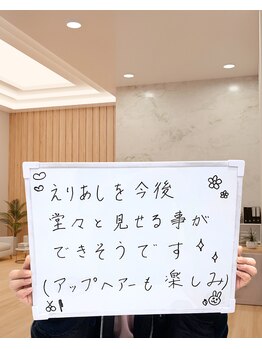 えりあしを今後
堂々と見せる事が
できそうです
(アップヘアーも楽しみ)